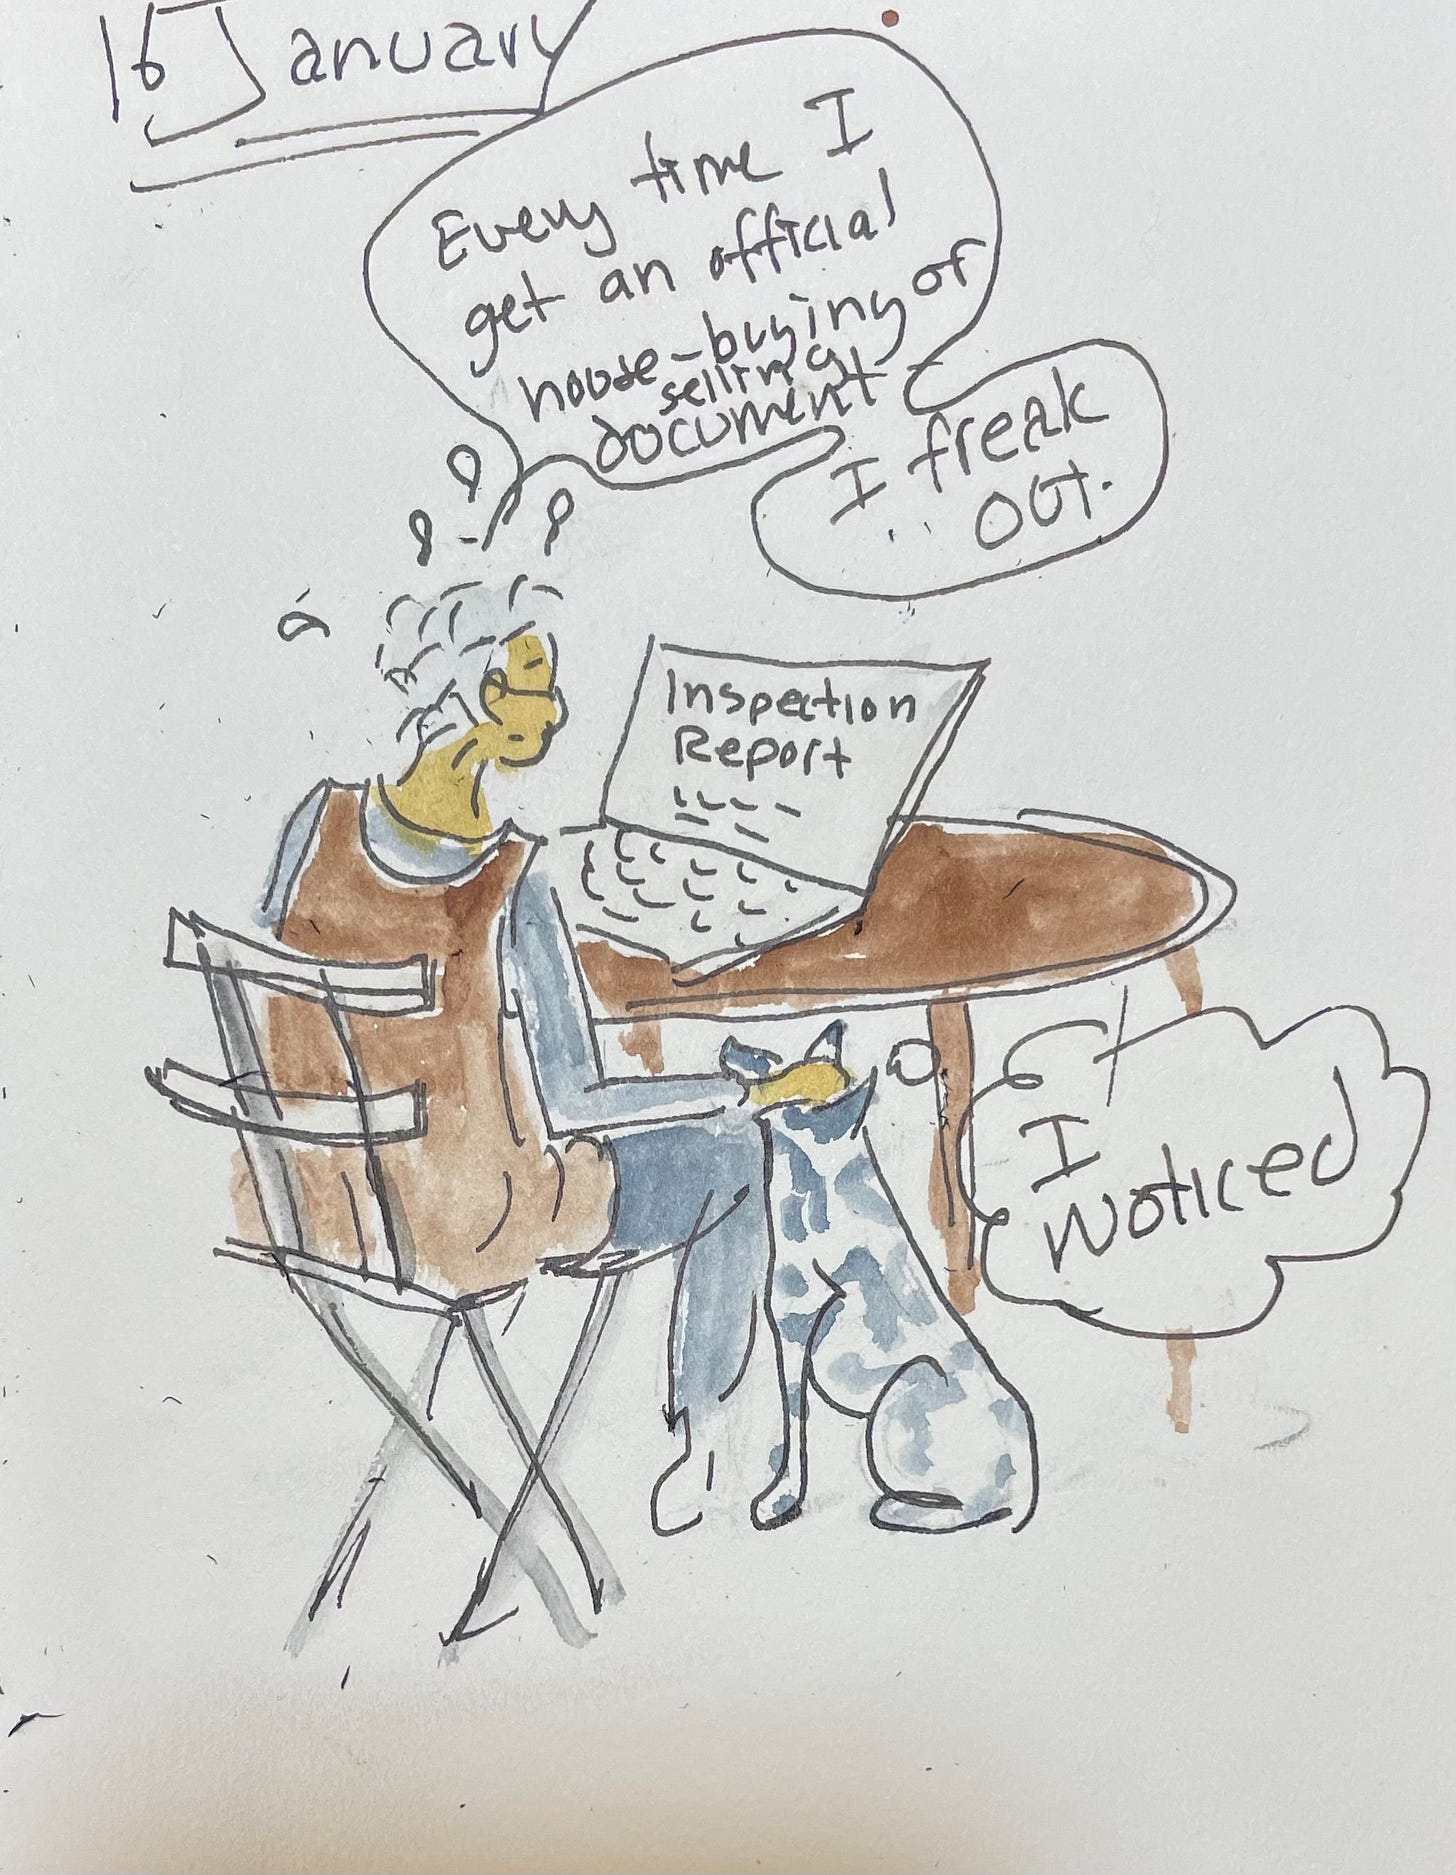 16 January
Every time I
get an official
house-buying or
selling
document
I freak
out.
Inspection
Report
I
noticed